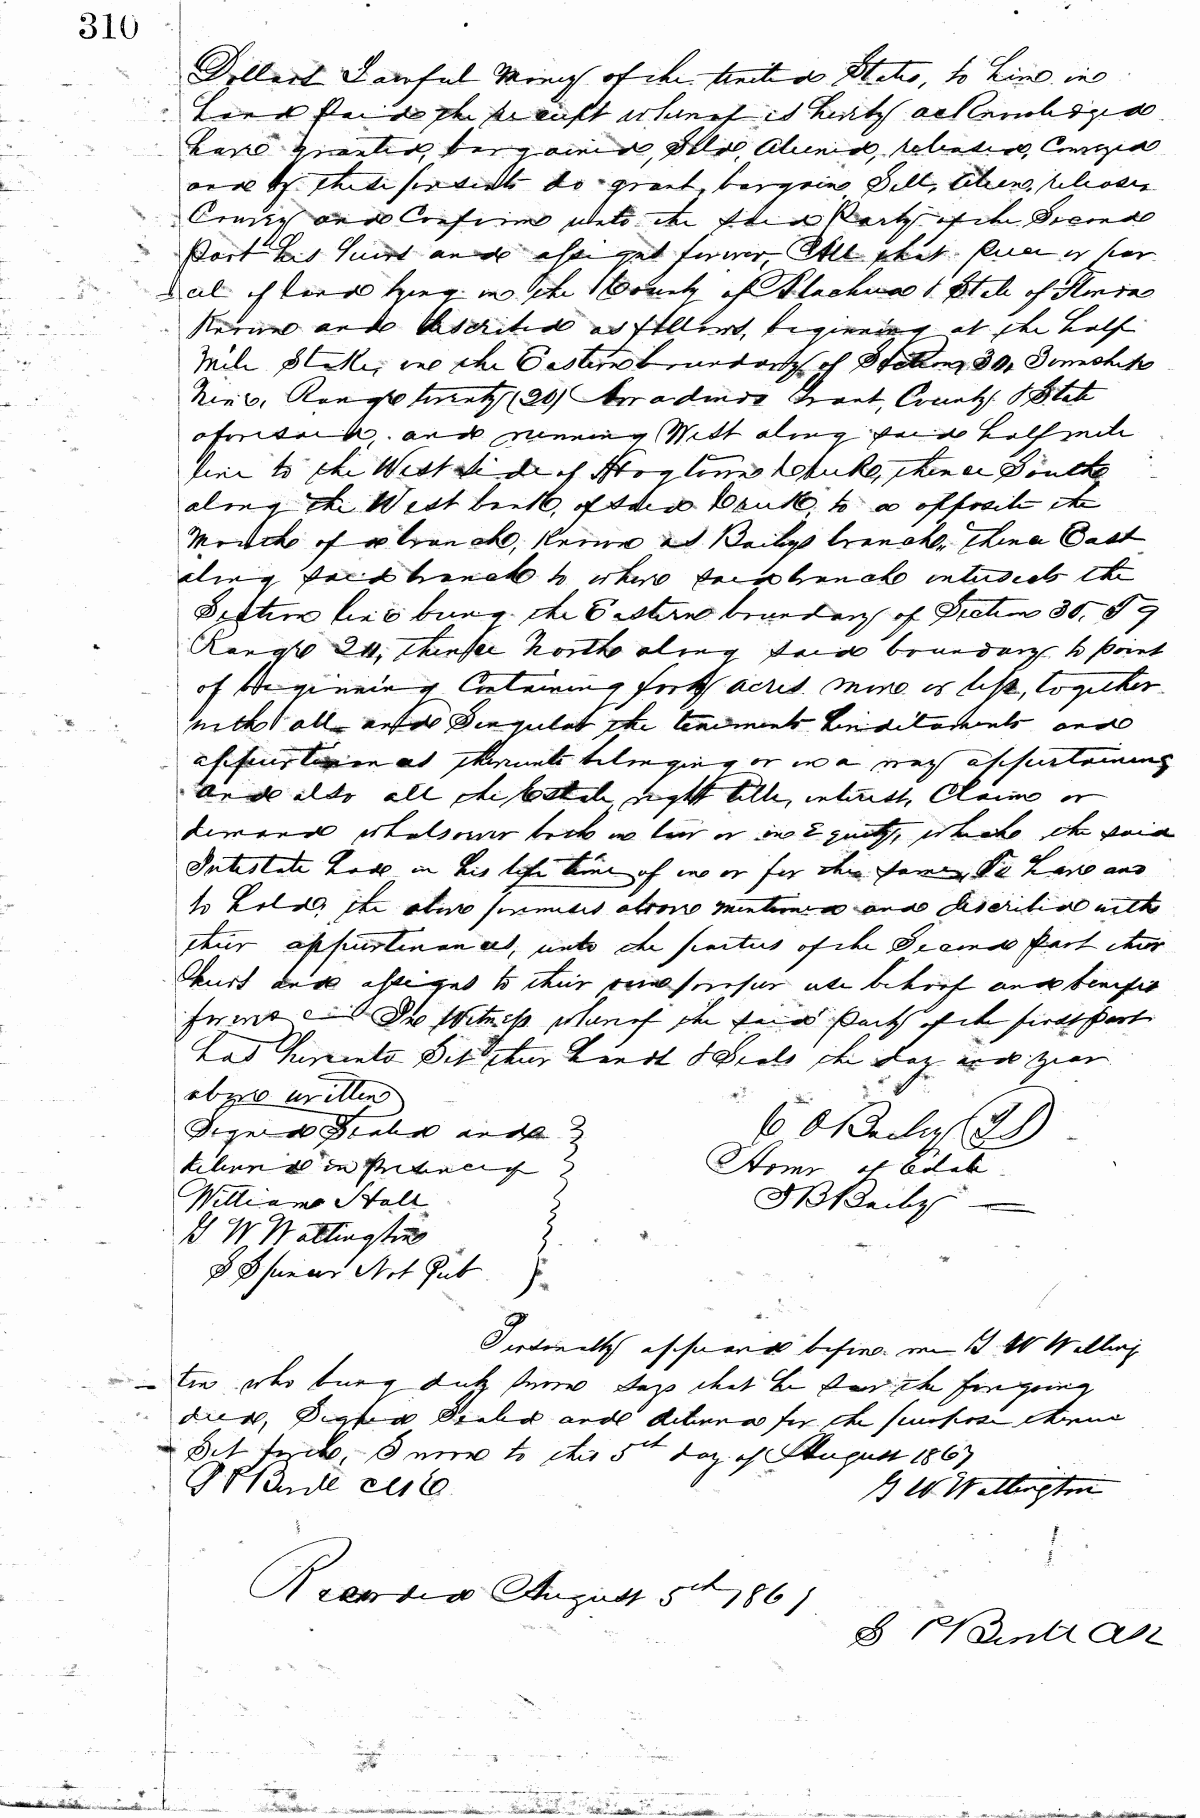 310
Dollars Lawful Money of the United States, to him in
hand paid the receipt whereof is hereby acknowledged
have granted, bargained, Sold, Aliened, released, Conveyed
and by these presents do grant, bargain, Sell, alien, release,
Convey and Confirm unto the said Party of the Second
Part his heirs and assigns forever, All that piece or par
cel of land lying in the County of Alachua & State of Florida
Known and described as follows, beginning at the half
Mile Stake, on the Eastern boundary of Section 30, Township
Nine, Range twenty (20) Arradondo Grant, County & State
aforesaid, and running West along said half mile
line to the West side of Hogtown Creek, thence South
along the West bank, of said Creek, to a opposite the
Mouth of a branch, Known as Baileys branch, thence East
along said branch to where said branch intersects the
Section line being the Eastern boundary of Section 30, T 9
Range 20, thence North along said boundary to point
of beginning Containing forty acres more or less, together
with all and Singular the tenements hereditaments and
appurtenances thereunto belonging or in a way appurtaining
and also all the Estate, right title, interest, Claim or
demand whatsoever both in law or in Equity, which the said
Intestate had in his life time of in or for the same, To have and
to hold, the above premises above mentioned and described with
their appurtenances, unto the parties of the Second part their
heirs and assigns to their own proper use behoof and benefit
forever In Witness whereof the said Party of the first part
has hereunto Set their hands & Seals the day and year
above written
Signed Sealed and
delivered in presence of
William Hall
G W Wallington
S Spencer Not Pub
C O Bailey (LS)
Admr of Estate
J B Bailey
Personally appeared before me G W Walling
ton who being duly sworn says that he saw the foregoing
deed, Signed Sealed and delivered for the purpose therein
Set forth, Sworn to this 5th day of August 1867
G W Wallington
Recorded August 5th 1867